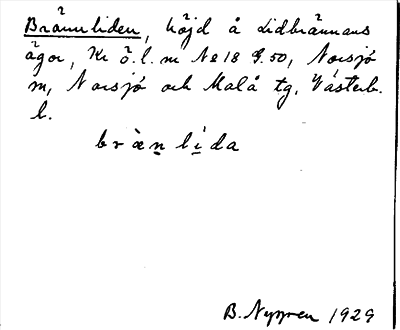 Brännliden, höjd å Lidbrännans
ägor, Kr ö. l. m No 18 G. 50, Norsjö
m, Norsjö och Malå tg, Västerb.
l.
brænlida
B. Nygren 1929